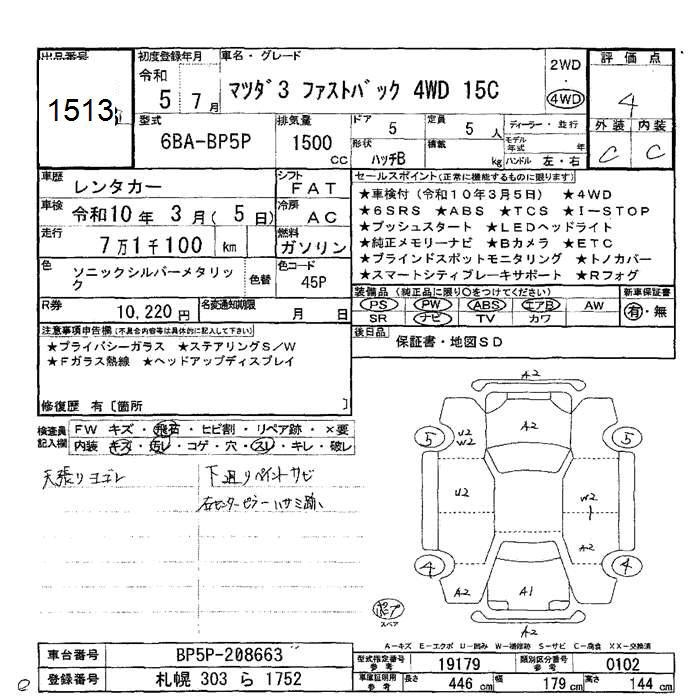 出品番号
1513
初度登録年月
令和
5 7月
車名・グレード
マツダ3 ファストバック 4WD 15C
2WD
・
4WD
評価点
4
外装 内装
C C
型式
6BA-BP5P
排気量
1500
cc
ドア 5
形状 ハッチB
定員 5 人
積載 kg
ディーラー・並行
モデル年式 年
ハンドル 左・右
車歴
レンタカー
シフト
FAT
車検
令和10年 3月( 5日)
冷房
AC
走行
7万1千100 km
燃料
ガソリン
色
ソニックシルバーメタリック
色替
色コード
45P
R券
10,220円
名変通知期限
月 日
セールスポイント(正常に機能するものに限ります)
★車検付(令和10年3月5日) ★4WD
★6SRS ★ABS ★TCS ★I-STOP
★プッシュスタート ★LEDヘッドライト
★純正メモリーナビ ★Bカメラ ★ETC
★ブラインドスポットモニタリング ★トノカバー
★スマートシティブレーキサポート ★Rフォグ
装備品(純正品に限り○をつけてください)
PS PW ABS エアB AW
SR ナビ TV カワ
新車保証書
有・無
後日品
保証書・地図SD
注意事項申告欄(不具合内容等は具体的に記入して下さい)
★プライバシーガラス ★ステアリングS/W
★Fガラス熱線 ★ヘッドアップディスプレイ
修復歴 有〔箇所 〕
検査員記入欄
FW キズ・飛石・ヒビ割・リペア跡・×要
内装 キズ・汚レ・コゲ・穴・スレ・キレ・破レ
天張りヨゴレ
下廻りペイントサビ
右センターピラーハサミ跡、
A2
A2
5
U2
W2
5
A2
U2
W2
A2
4
4
A2
A1
A2
A2
ポンプ
スペア
A-キズ E-エクボ U-凹み W-補修跡 S-サビ C-腐食 XX-交換済
車台番号
BP5P-208663
登録番号
札幌 303 ら 1752
型式指定番号(参考)
19179
類別区分番号(参考)
0102
車庫証明用(参考)
長さ 446 cm 幅 179 cm 高さ 144 cm